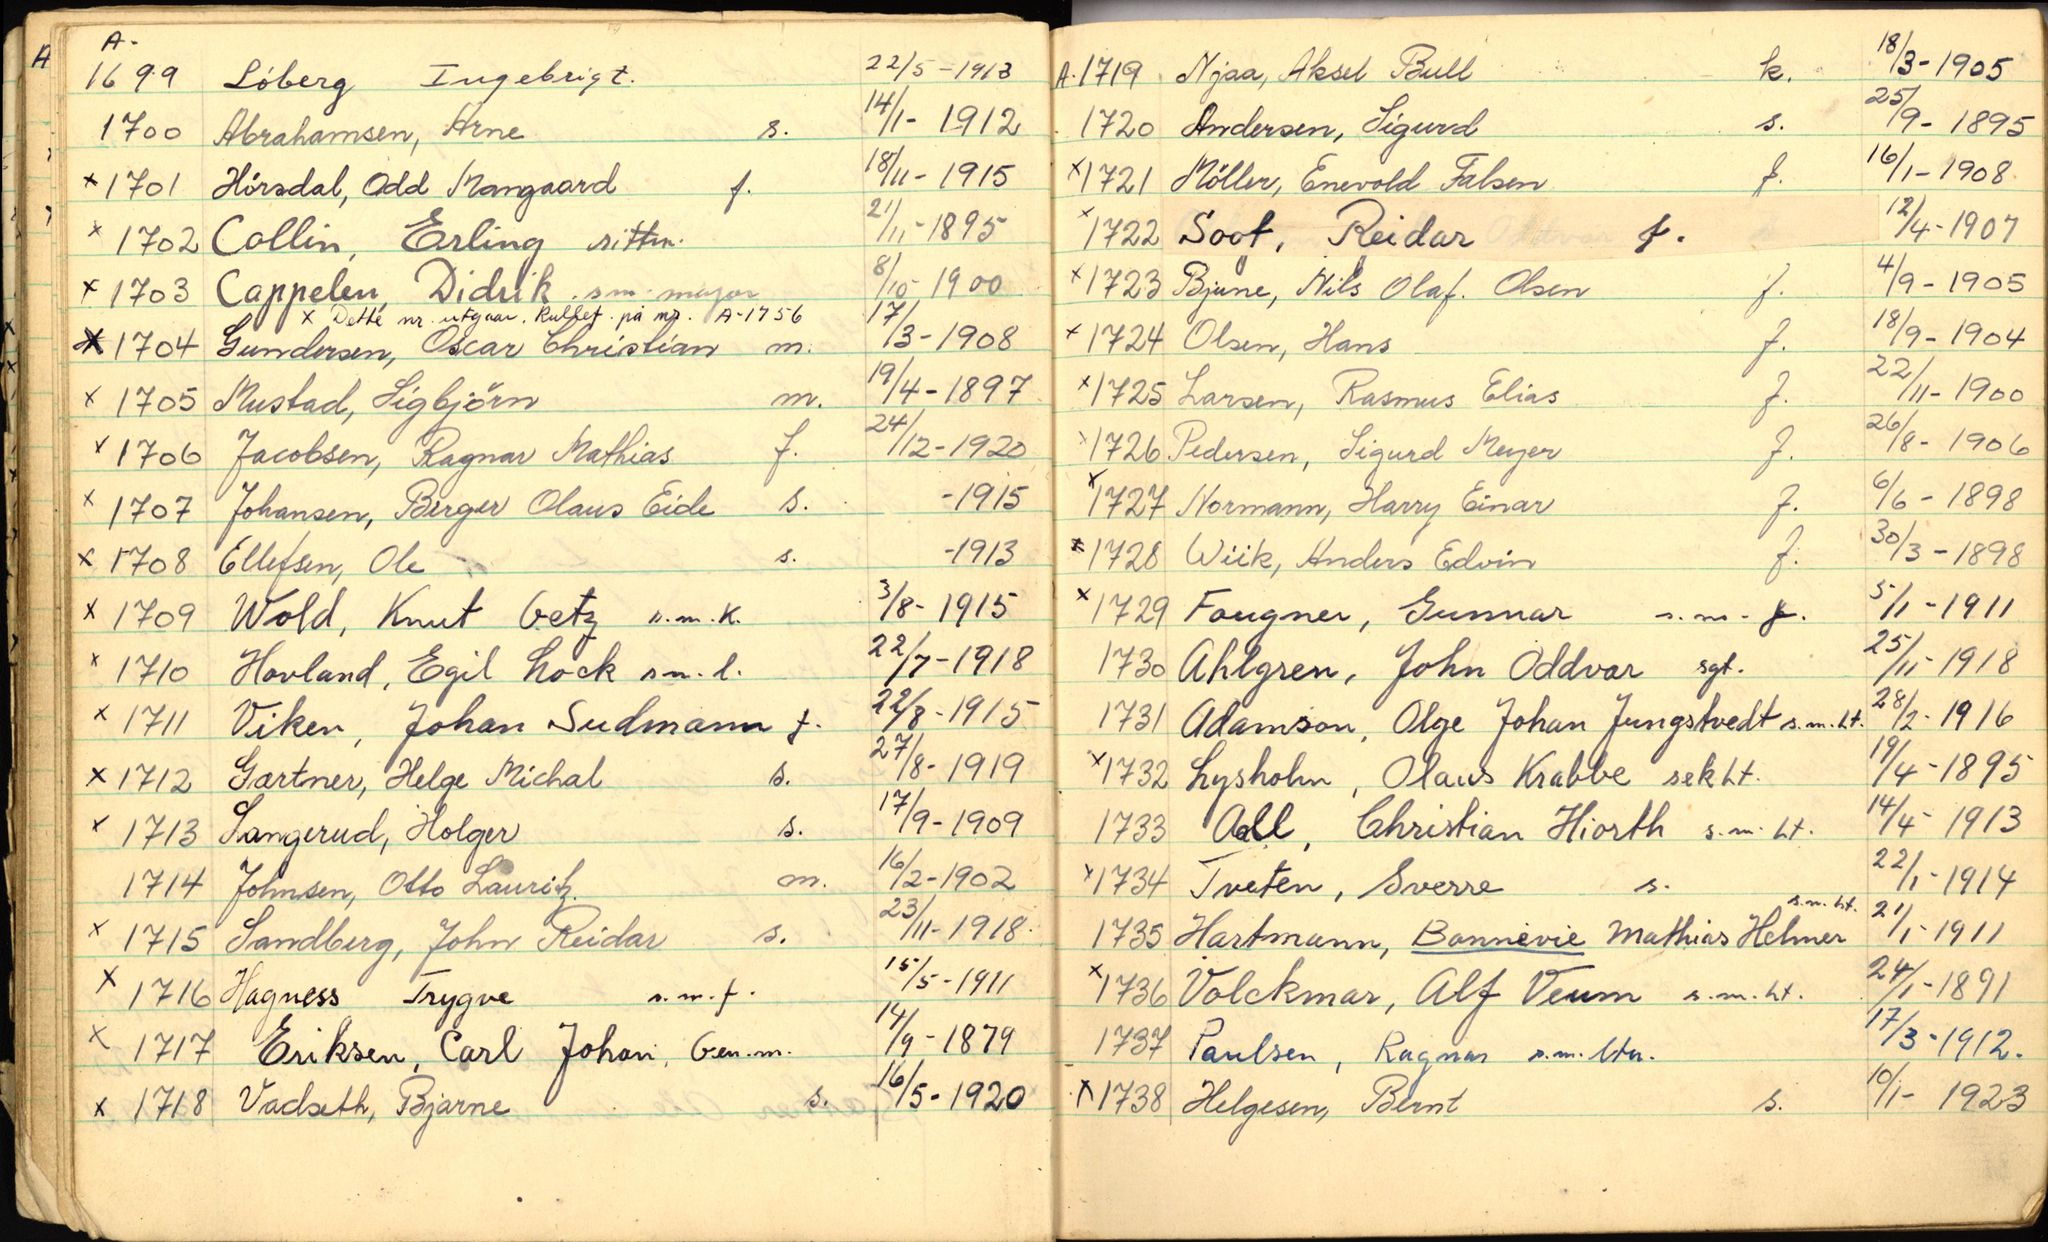 A-
1699 Lóberg Ingebrigt. 22/5-1913
1700 Abrahamsen, Arne s. 14/1-1912
x 1701 Hörsdal, Odd Mangaard f. 18/11-1915
x 1702 Collin, Erling rittm. 21/11-1895
x 1703 Cappelen, Didrik sm-major 8/10-1900
x Dette nr. utgaar. Rullef. på nr. A-1756
x 1704 Gundersen, Oscar Christian m. 17/3-1908
x 1705 Mustad, Sigbjörn m. 19/4-1897
x 1706 Jacobsen, Ragnar Mathias f. 24/12-1920
x 1707 Johansen, Birger Olaus Eide s. -1915
x 1708 Ellefsen, Ole s. -1913
x 1709 Wold, Knut Getz s.m.k. 3/8-1915
x 1710 Hovland, Egil Lock s.m.l. 22/7-1918
x 1711 Viken, Johan Sudmann f. 22/8-1915
x 1712 Gærtner, Helge Michal s. 27/8-1919
x 1713 Sangerud, Holger s. 17/9-1909
1714 Johnsen, Otto Lauritz. m. 16/2-1902
x 1715 Sandberg, John Reidar s. 23/11-1918
x 1716 Hagness Trygve s.m.f. 15/5-1911
x 1717 Eriksen, Carl Johan, Gen.m. 14/9-1879
x 1718 Vadseth, Bjarne s. 16/5-1920
A.1719 Njaa, Aksel Bull k. 18/3-1905
1720 Andersen, Sigurd s. 25/9-1895
x 1721 Möller, Enevold Falsen f. 16/1-1908
x 1722 Soot, Reidar f. 12/4-1907
x 1723 Bjune, Nils Olaf. Olsen f. 4/9-1905
x 1724 Olsen, Hans f. 18/9-1904
x 1725 Larsen, Rasmus Elias f. 22/11-1900
x 1726 Pedersen, Sigurd Meyer f. 26/8-1906
x 1727 Normann, Harry Einar f. 6/6-1898
x 1728 Wiik, Anders Edvin f. 30/3-1898
x 1729 Fougner, Gunnar s.m-f. 5/1-1911
1730 Ahlgren, John Oddvar sgt. 25/11-1918
1731 Adamson, Olge Johan Jungstvedt s.m.Lt. 28/2-1916
x 1732 Lysholm, Olaus Krabbe sekLt. 19/4-1895
1733 Aall, Christian Hiorth s.m.Lt. 14/4-1913
x 1734 Tveten, Sverre s. 22/1-1914
1735 Hartmann, Bonnevie Mathias Helmer s.m.Lt. 21/1-1911
x 1736 Volckmar, Alf Veum s.m.Lt. 24/1-1891
1737 Paulsen, Ragnar s.m.ltn. 17/3-1912.
x 1738 Helgesen, Bernt s. 10/1-1923